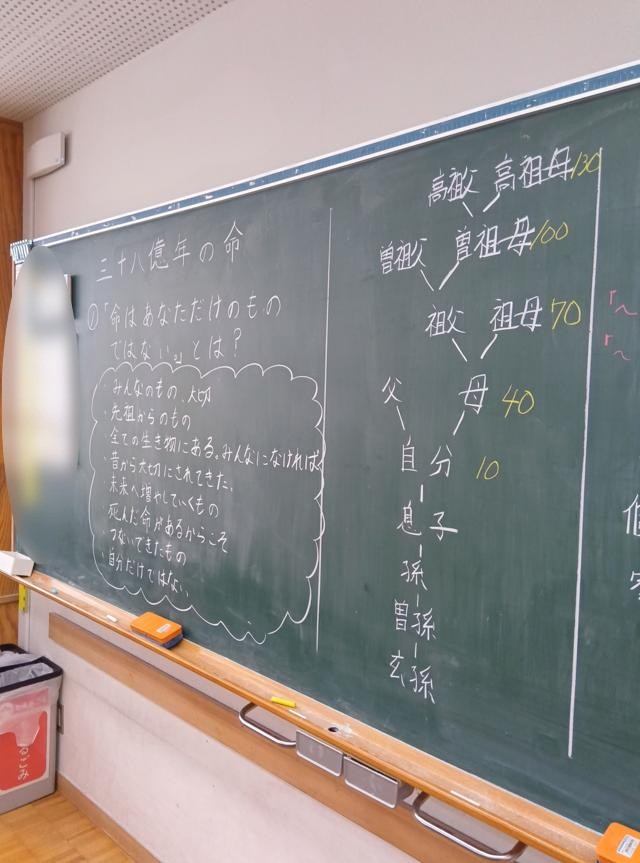 三十八億年の命
①「命はあなただけのもの
ではない。」とは？
・みんなのもの、大切
・先祖からのもの
・全ての生き物にある。みんなになければ
・昔から大切にされてきた。
・未来へ増やしていくもの
・死んだ命があるからこそ
つないできたもの
・自分だけではない。
高祖父 高祖母 130
曽祖父 曽祖母 100
祖父 祖母 70
父 母 40
自分 10
息子
孫
曽孫
玄孫
「～
「～
ごみ